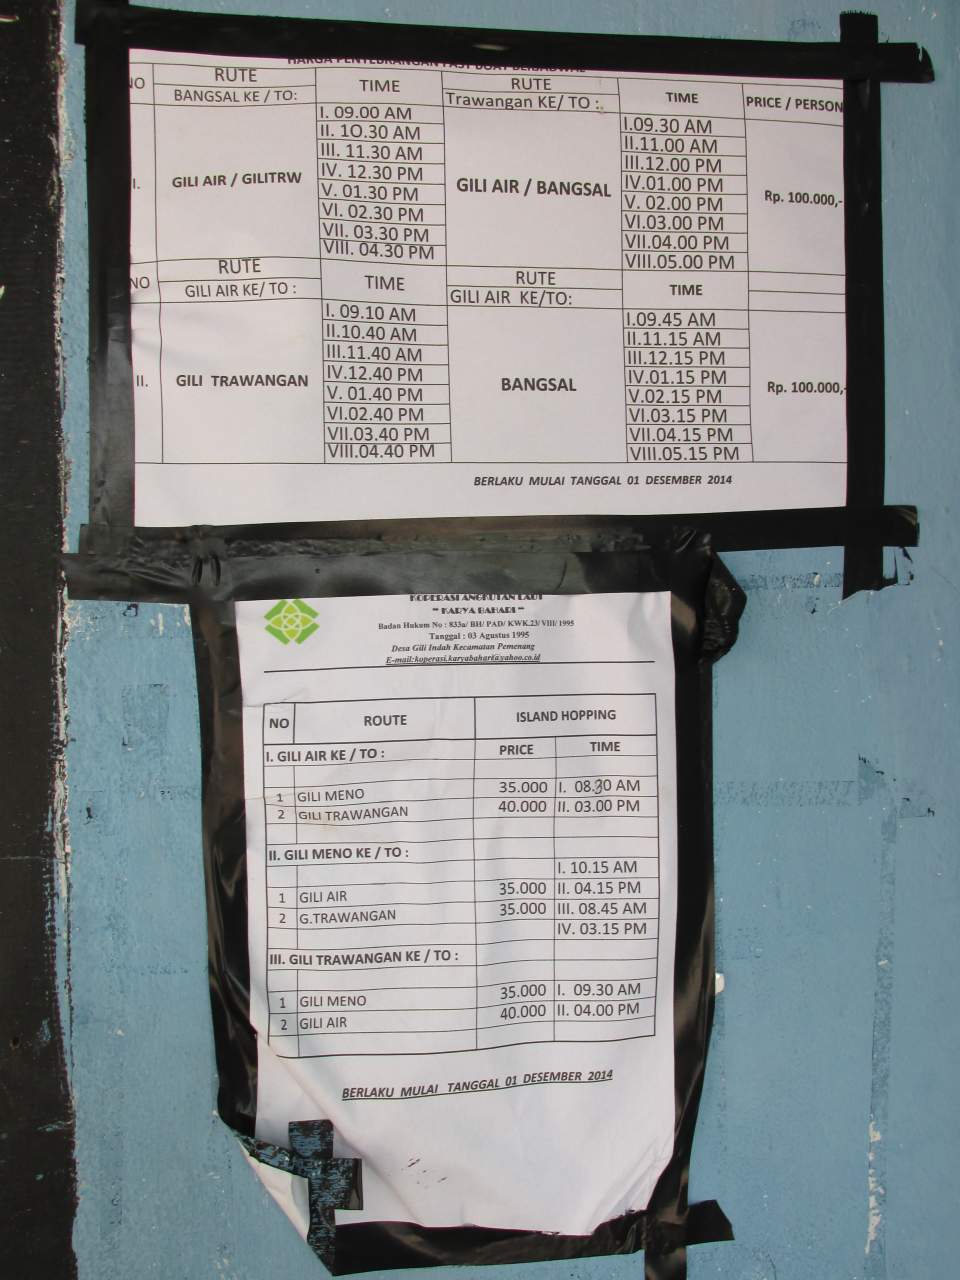 HARGA PENYEBRANGAN FAST BOAT BERJADWAL
NO RUTE TIME RUTE TIME PRICE / PERSON
BANGSAL KE / TO: Trawangan KE/ TO :
I. GILI AIR / GILITRW GILI AIR / BANGSAL Rp. 100.000,-
I. 09.00 AM I.09.30 AM
II. 10.30 AM II.11.00 AM
III. 11.30 AM III.12.00 PM
IV. 12.30 PM IV.01.00 PM
V. 01.30 PM V. 02.00 PM
VI. 02.30 PM VI.03.00 PM
VII. 03.30 PM VII.04.00 PM
VIII. 04.30 PM VIII.05.00 PM
NO RUTE TIME RUTE TIME
GILI AIR KE/ TO : GILI AIR KE/TO:
II. GILI TRAWANGAN BANGSAL Rp. 100.000,-
I. 09.10 AM I.09.45 AM
II.10.40 AM II.11.15 AM
III.11.40 AM III.12.15 PM
IV.12.40 PM IV.01.15 PM
V. 01.40 PM V.02.15 PM
VI.02.40 PM VI.03.15 PM
VII.03.40 PM VII.04.15 PM
VIII.04.40 PM VIII.05.15 PM
BERLAKU MULAI TANGGAL 01 DESEMBER 2014
KOPERASI ANGKUTAN LAUT
" KARYA BAHARI "
Badan Hukum No : 833a/ BH/ PAD/ KWK.23/ VIII/ 1995
Tanggal : 03 Agustus 1995
Desa Gili Indah Kecamatan Pemenang
E-mail:koperasi.karyabahari@yahoo.co.id
NO ROUTE ISLAND HOPPING
I. GILI AIR KE / TO : PRICE TIME
1 GILI MENO 35.000 I. 08.30 AM
2 GILI TRAWANGAN 40.000 II. 03.00 PM
II. GILI MENO KE / TO :
I. 10.15 AM
1 GILI AIR 35.000 II. 04.15 PM
2 G.TRAWANGAN 35.000 III. 08.45 AM
IV. 03.15 PM
III. GILI TRAWANGAN KE / TO :
1 GILI MENO 35.000 I. 09.30 AM
2 GILI AIR 40.000 II. 04.00 PM
BERLAKU MULAI TANGGAL 01 DESEMBER 2014